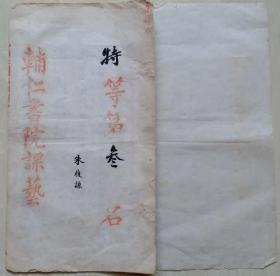 特等第叁名
朱俊諒
輔仁書院課藝